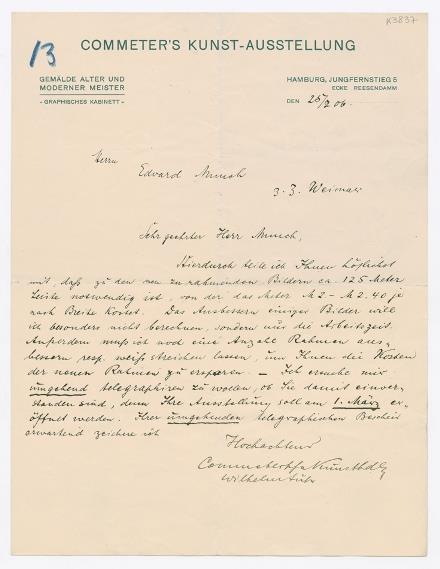 K3837
13
COMMETER'S KUNST-AUSSTELLUNG
GEMÄLDE ALTER UND
MODERNER MEISTER
- GRAPHISCHES KABINETT -
HAMBURG, JUNGFERNSTIEG 5
ECKE REESENDAMM
DEN 25/2 06.
Herrn
Edvard Munch
z. Z. Weimar
Sehr geehrter Herr Munch,
Hierdurch teile ich Ihnen höflichst
mit, daß zu den neu zu rahmenden Bildern ca. 125 Meter
Leiste notwendig ist, von der das Meter M 2.- M 2.40 je
nach Breite kostet. Das Ausbessern einiger Bilder will
ich besonders nicht berechnen, sondern nur die Arbeitszeit.
Außerdem muß ich noch eine Anzahl Rahmen aus-
bessern resp. weiß streichen lassen, um Ihnen die Kosten
der neuen Rahmen zu ersparen. - Ich ersuche mir
umgehend telegraphiren zu wollen, ob Sie damit einver-
standen sind, denn Ihre Ausstellung soll am 1. März er-
öffnet werden. Ihren umgehenden telegraphischen Bescheid
erwartend zeichne ich
Hochachtend
Commetersche Kunsthdlg
Wilhelm Suhr